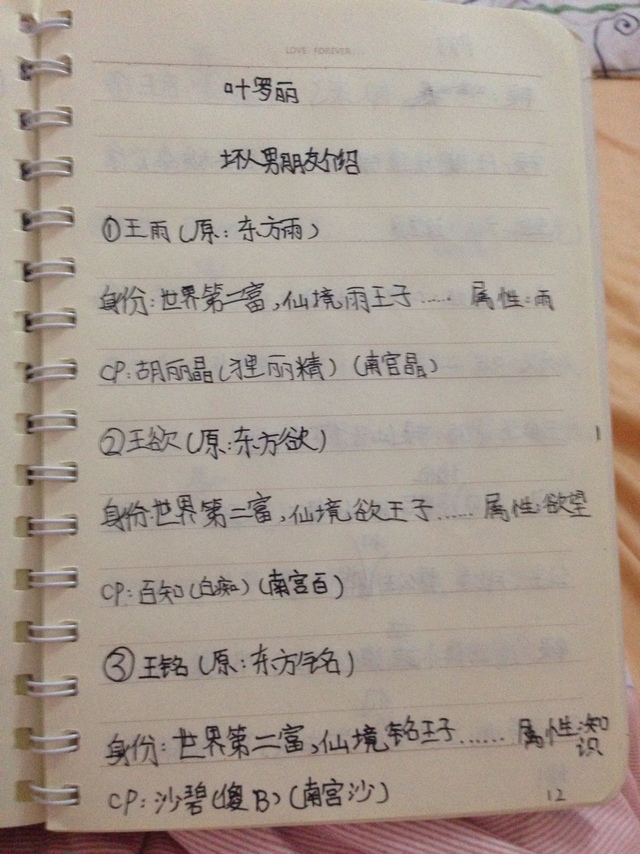 LOVE FOREVER
叶罗丽
坏人男朋友介绍
①王雨(原:东方雨)
身份:世界第二富,仙境雨王子…… 属性:雨
CP:胡丽晶(狸丽精)(南宫晶)
②王欲(原:东方欲)
身份:世界第二富,仙境欲王子…… 属性:欲望
CP:百知(白痴)(南宫百)
③王铭(原:东方铭)
身份:世界第二富,仙境铭王子…… 属性:知识
CP:沙碧(傻B)(南宫沙)
12